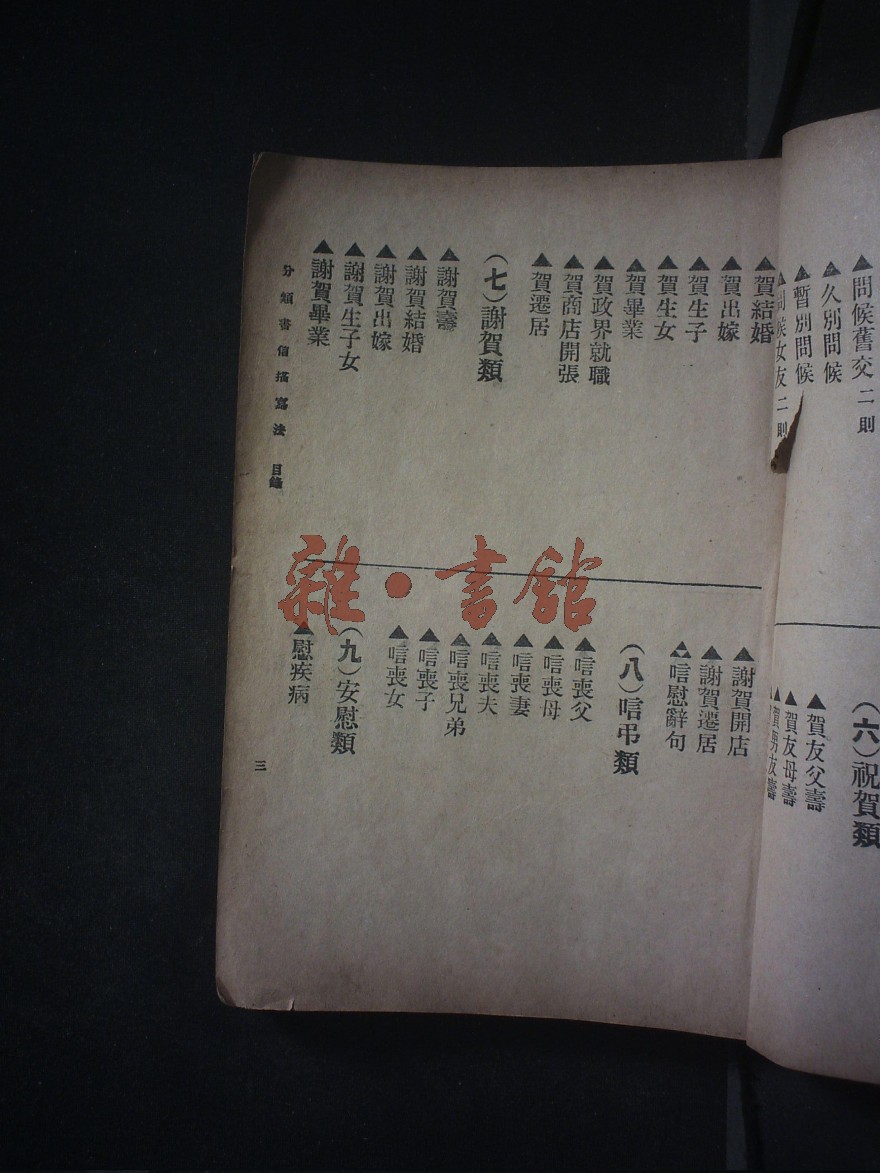 ▲問候舊交 二則
▲久別問候
▲暫別問候
▲問候女友 二則
(六)祝賀類
▲賀友父壽
▲賀友母壽
▲賀男友壽
▲賀結婚
▲賀出嫁
▲賀生子
▲賀生女
▲賀畢業
▲賀政界就職
▲賀商店開張
▲賀遷居
(七)謝賀類
▲謝賀壽
▲謝賀結婚
▲謝賀出嫁
▲謝賀生子女
▲謝賀畢業
▲謝賀開店
▲謝賀遷居
▲唁慰辭句
(八)唁弔類
▲唁喪父
▲唁喪母
▲唁喪妻
▲唁喪夫
▲唁喪兄弟
▲唁喪子
▲唁喪女
(九)安慰類
▲慰疾病
分類書信描寫法 目錄
三
雜·書館